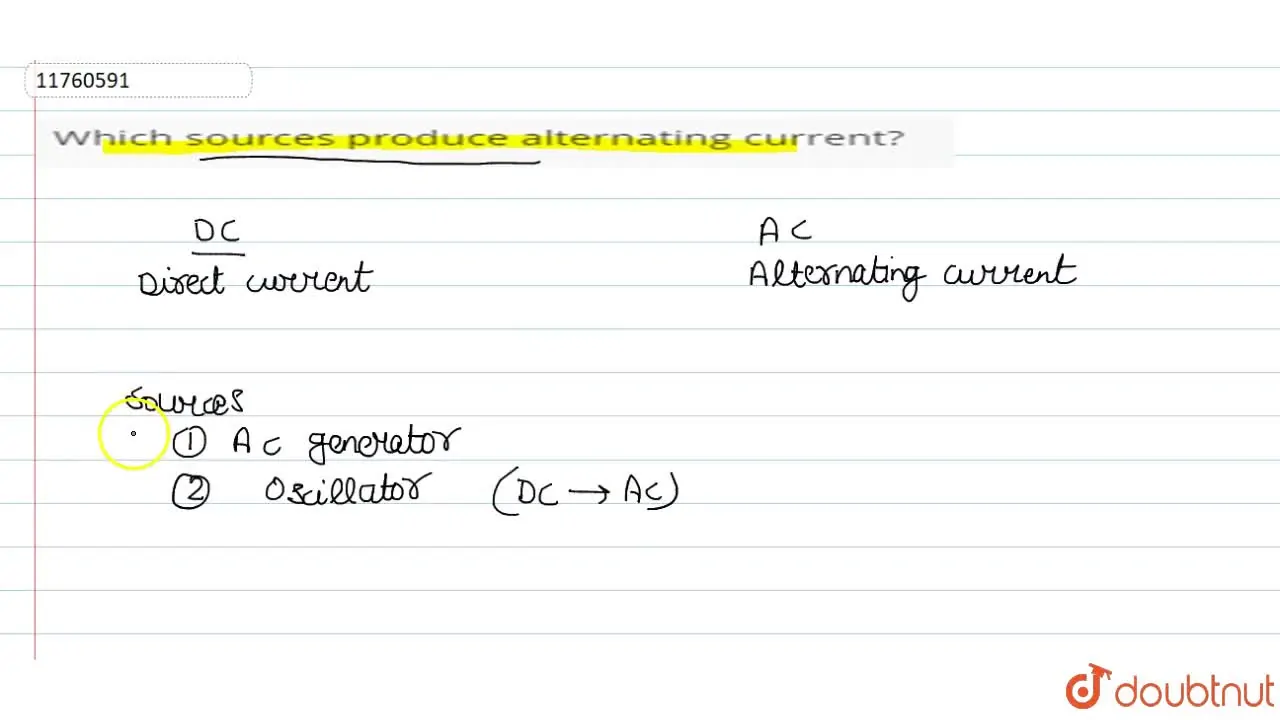 11760591
Which sources produce alternating current?
DC
AC
Direct current
Alternating current
Sources
① AC generator
② Oscillator (DC → AC)
doubtnut